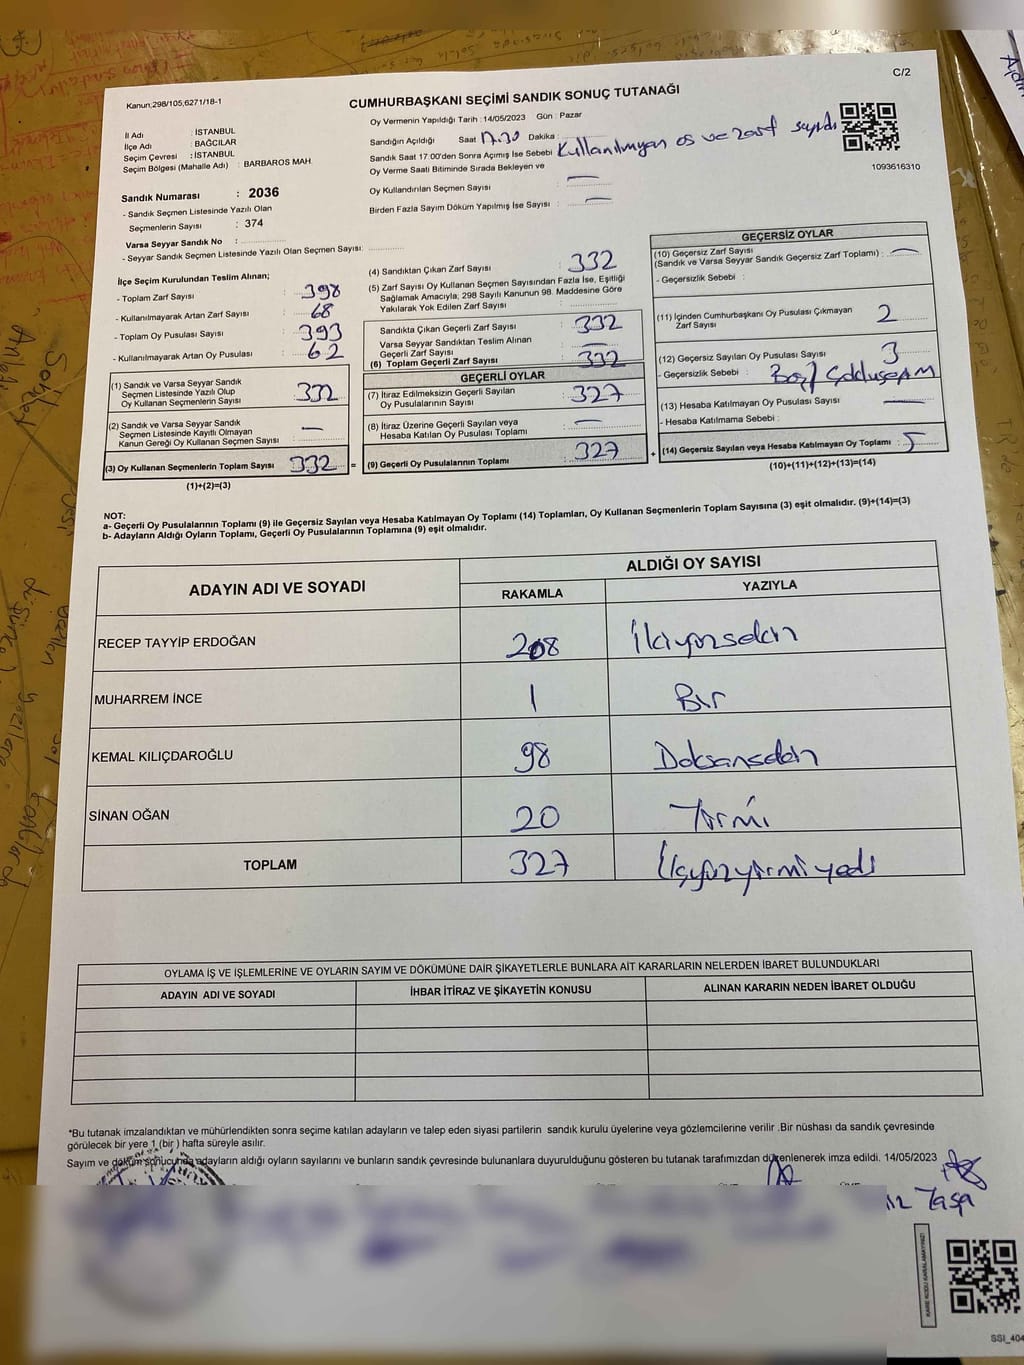 C/2
Kanun;298/105,6271/18-1
CUMHURBAŞKANI SEÇİMİ SANDIK SONUÇ TUTANAĞI
Oy Vermenin Yapıldığı Tarih : 14/05/2023 Gün : Pazar
İl Adı : İSTANBUL
İlçe Adı : BAĞCILAR
Seçim Çevresi : İSTANBUL
Seçim Bölgesi (Mahalle Adı) : BARBAROS MAH.
Sandığın Açıldığı Saat 17.30 Dakika :
Sandık Saat 17:00'den Sonra Açımış İse Sebebi Kullanılmayan os ve zarf sayıldı
Oy Verme Saati Bitiminde Sırada Bekleyen ve
Oy Kullandırılan Seçmen Sayısı : —
Birden Fazla Sayım Döküm Yapılmış İse Sayısı : —
1093616310
Sandık Numarası : 2036
- Sandık Seçmen Listesinde Yazılı Olan
Seçmenlerin Sayısı : 374
Varsa Seyyar Sandık No :
- Seyyar Sandık Seçmen Listesinde Yazılı Olan Seçmen Sayısı:
İlçe Seçim Kurulundan Teslim Alınan;
- Toplam Zarf Sayısı : 398
- Kullanılmayarak Artan Zarf Sayısı : 68
- Toplam Oy Pusulası Sayısı : 393
- Kullanılmayarak Artan Oy Pusulası : 62
(1) Sandık ve Varsa Seyyar Sandık
Seçmen Listesinde Yazılı Olup
Oy Kullanan Seçmenlerin Sayısı : 332
(2) Sandık ve Varsa Seyyar Sandık
Seçmen Listesinde Kayıtlı Olmayan
Kanun Gereği Oy Kullanan Seçmen Sayısı : —
(3) Oy Kullanan Seçmenlerin Toplam Sayısı : 332 =
(1)+(2)=(3)
(4) Sandıktan Çıkan Zarf Sayısı : 332
(5) Zarf Sayısı Oy Kullanan Seçmen Sayısından Fazla İse, Eşitliği
Sağlamak Amacıyla; 298 Sayılı Kanunun 98. Maddesine Göre
Yakılarak Yok Edilen Zarf Sayısı :
Sandıkta Çıkan Geçerli Zarf Sayısı : 332
Varsa Seyyar Sandıktan Teslim Alınan
Geçerli Zarf Sayısı : —
(6) Toplam Geçerli Zarf Sayısı : 332
GEÇERLİ OYLAR
(7) İtiraz Edilmeksizin Geçerli Sayılan
Oy Pusulalarının Sayısı : 327
(8) İtiraz Üzerine Geçerli Sayılan veya
Hesaba Katılan Oy Pusulası Toplamı : —
(9) Geçerli Oy Pusulalarının Toplamı : 327 +
GEÇERSİZ OYLAR
(10) Geçersiz Zarf Sayısı
(Sandık ve Varsa Seyyar Sandık Geçersiz Zarf Toplamı) : —
- Geçersizlik Sebebi :
(11) İçinden Cumhurbaşkanı Oy Pusulası Çıkmayan
Zarf Sayısı : 2
(12) Geçersiz Sayılan Oy Pusulası Sayısı : 3
- Geçersizlik Sebebi : Boş/
(13) Hesaba Katılmayan Oy Pusulası Sayısı : —
- Hesaba Katılmama Sebebi :
(14) Geçersiz Sayılan veya Hesaba Katılmayan Oy Toplamı : 5
(10)+(11)+(12)+(13)=(14)
NOT:
a- Geçerli Oy Pusulalarının Toplamı (9) ile Geçersiz Sayılan veya Hesaba Katılmayan Oy Toplamı (14) Toplamları, Oy Kullanan Seçmenlerin Toplam Sayısına (3) eşit olmalıdır. (9)+(14)=(3)
b- Adayların Aldığı Oyların Toplamı, Geçerli Oy Pusulalarının Toplamına (9) eşit olmalıdır.
ADAYIN ADI VE SOYADI
ALDIĞI OY SAYISI
RAKAMLA YAZIYLA
RECEP TAYYİP ERDOĞAN 208 İkiyüzsekin
MUHARREM İNCE 1 Bir
KEMAL KILIÇDAROĞLU 98 Doksansekin
SİNAN OĞAN 20 Yirmi
TOPLAM 327 Üçyüzyirmiyedi
OYLAMA İŞ VE İŞLEMLERİNE VE OYLARIN SAYIM VE DÖKÜMÜNE DAİR ŞİKAYETLERLE BUNLARA AİT KARARLARIN NELERDEN İBARET BULUNDUKLARI
ADAYIN ADI VE SOYADI İHBAR İTİRAZ VE ŞİKAYETİN KONUSU ALINAN KARARIN NEDEN İBARET OLDUĞU
*Bu tutanak imzalandıktan ve mühürlendikten sonra seçime katılan adayların ve talep eden siyasi partilerin sandık kurulu üyelerine veya gözlemcilerine verilir .Bir nüshası da sandık çevresinde
görülecek bir yere 1 (bir ) hafta süreyle asılır.
Sayım ve döküm sonucunda adayların aldığı oyların sayılarını ve bunların sandık çevresinde bulunanlara duyurulduğunu gösteren bu tutanak tarafımızdan düzenlenerek imza edildi. 14/05/2023
Yaşa
KARE KODU KARALAMAYINIZ!
SSI_404